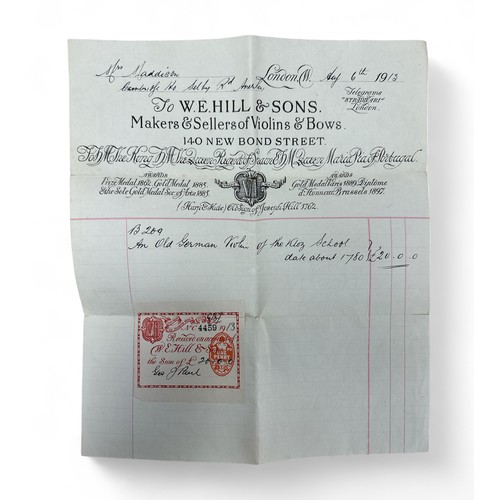 Mrs Maddison London, W. Aug 6th 1913
Selby Rd
Telegrams
To W.E. HILL & SONS. "STRADIVARI"
London.
Makers & Sellers of Violins & Bows.
140 NEW BOND STREET.
To H.M. The King, H.M. The Queen Regent of Spain & H.M. Queen Maria Pia of Portugal
AWARDS AWARDS
Prize Medal 1862. Gold Medal 1885. Gold Medal Paris 1889. Diplome
& the Sole Gold Medal Soc. of Arts 1885. d'Honneur Brussels 1897.
(Harp & Flute) Old Sign of Joseph Hill 1762.
B 209
An Old German Violin of the Kloz School
date about 1780 £20.0.0
No 4459 1913
Received on account
W.E. Hill &
the Sum of £ 20.0.0
Geo J Paul